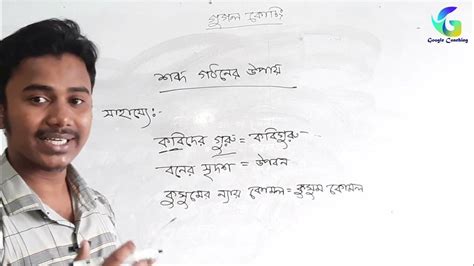 গুগল কোচিং
Google Coaching
শব্দ গঠনের উপায়
সাহায্যে:-
কবিদের গুরু = কবিগুরু
বনের সদৃশ = উপবন
কুসুমের ন্যায় কোমল = কুসুম কোমল